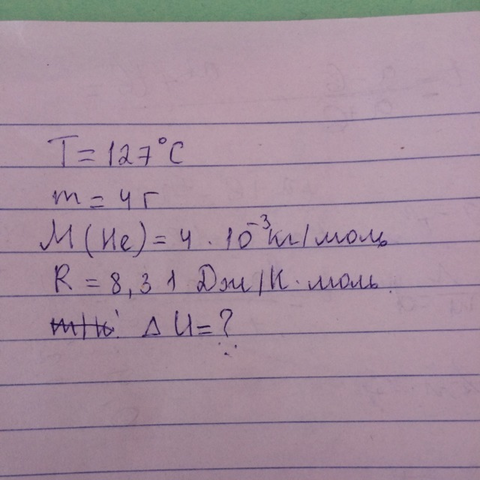 T = 127°C
m = 4 г
M(He) = 4 · 10⁻³ кг/моль
R = 8,31 Дж/К · моль
ΔU = ?